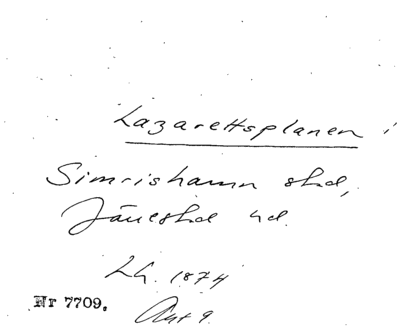 Lazarettsplanen i
Simrishamn stad,
Järrestad hd.
LG. 1874
Nr 7709.
Akt 9.